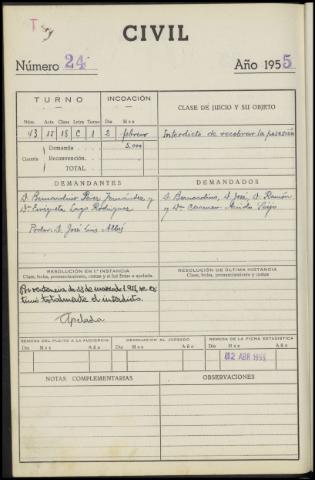 CIVIL
Número 24 Año 1955
TURNO
INCOACIÓN
CLASE DE JUICIO Y SU OBJETO
Núm. Art. Clase Letra Turno Día Mes
43 15 18 C 1 2 febrero Interdicto de recobrar la posesión
Cuantía Demanda 5.000
Reconvención
TOTAL
DEMANDANTES
DEMANDADOS
D. Bernardino Pérez Fernández y
D. Bernardino, D. José, D. Ramón
y Dª Carmen
Poder: D. José Luis
RESOLUCIÓN EN 1ª INSTANCIA
Clase, fecha, pronunciamiento, costas y si fué firme o apelada.
RESOLUCIÓN DE ÚLTIMA INSTANCIA
Clase, fecha, pronunciamiento y costas
Por sentencia de 23 de marzo de 1955 se
totalmente el interdicto.
Apelada
REMESA DEL PLEITO A LA AUDIENCIA
DEVOLUCIÓN AL JUZGADO
REMESA DE LA FICHA ESTADÍSTICA
Día Mes Año Día Mes Año Día Mes Año
02 ABR 1955
NOTAS COMPLEMENTARIAS
OBSERVACIONES